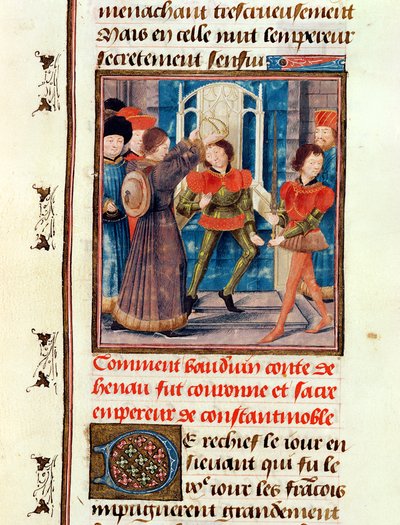 menachant trescrueusement
Mais en celle nuit lempereur
secretement senfui
Comment bauduin conte de
henau fut couronne et sacre
empereur de constantinoble
De rechief le iour en
sieuant qui fu le
ixe iour les francois
impugnerent grandement